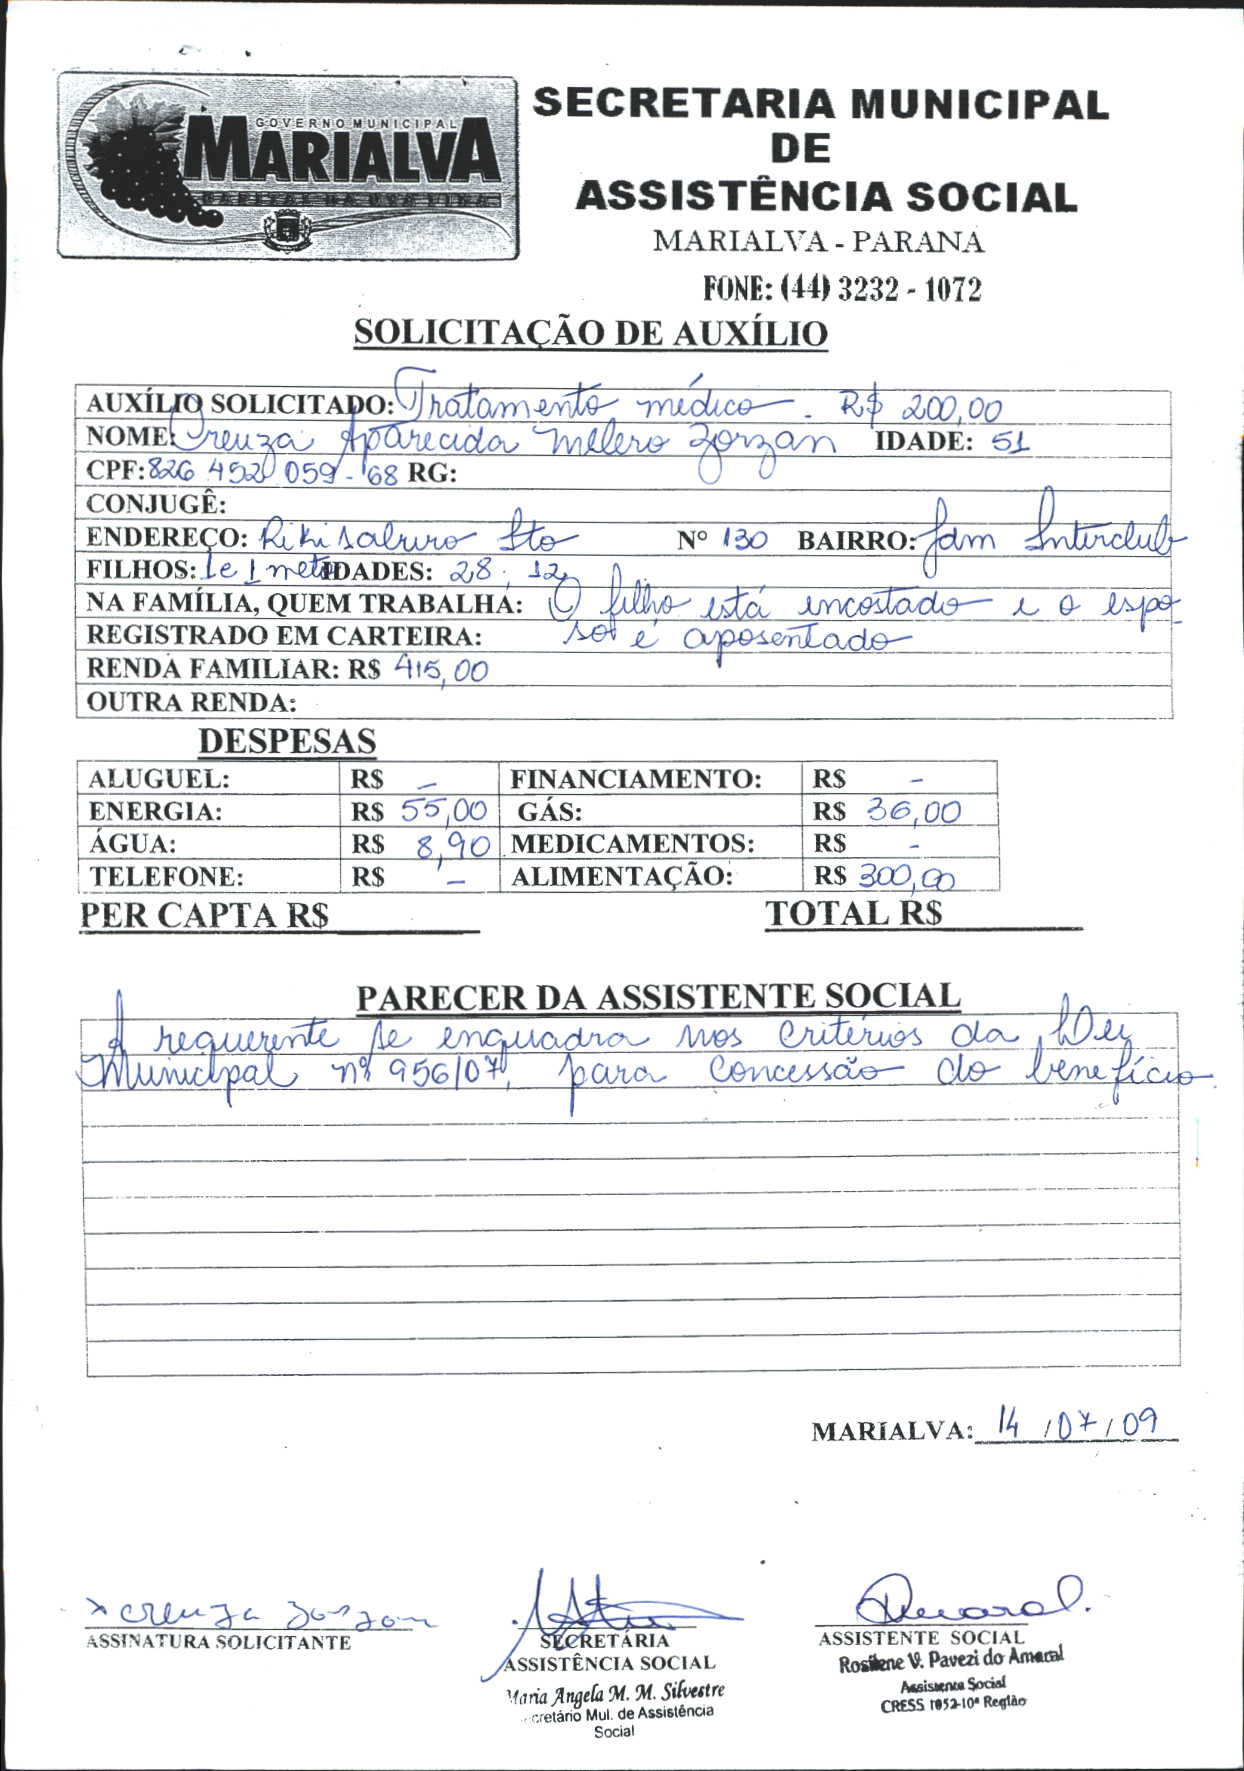 GOVERNO MUNICIPAL
MARIALVA
CAPITAL DA UVA FINA
SECRETARIA MUNICIPAL
DE
ASSISTÊNCIA SOCIAL
MARIALVA - PARANÁ
FONE: (44) 3232 - 1072
SOLICITAÇÃO DE AUXÍLIO
AUXÍLIO SOLICITADO: Tratamento médico - R$ 200,00
NOME: Creuza Aparecida Melero Zorzan IDADE: 51
CPF: 826 452 059 - 68 RG:
CONJUGÊ:
ENDEREÇO: Rikisaburo Ito Nº 130 BAIRRO: Jdm Interclub
FILHOS: 1 e 1 neto IDADES: 28 ; 12
NA FAMÍLIA, QUEM TRABALHA: O filho está encostado e o espo-
REGISTRADO EM CARTEIRA: so é aposentado
RENDA FAMILIAR: R$ 415,00
OUTRA RENDA:
DESPESAS
ALUGUEL: R$ - FINANCIAMENTO: R$ -
ENERGIA: R$ 55,00 GÁS: R$ 36,00
ÁGUA: R$ 8,90 MEDICAMENTOS: R$ -
TELEFONE: R$ - ALIMENTAÇÃO: R$ 300,00
PER CAPTA R$ TOTAL R$
PARECER DA ASSISTENTE SOCIAL
A requerente se enquadra nos critérios da Lei
Municipal nº 956/07, para concessão do benefício.
MARIALVA: 14 / 07 / 09
x creuza zorzan
ASSINATURA SOLICITANTE
SECRETÁRIA
ASSISTÊNCIA SOCIAL
Maria Angela M. M. Silvestre
cretário Mul. de Assistência
Social
ASSISTENTE SOCIAL
Rosilene V. Pavezi do Amaral
Assistente Social
CRESS 1052-10ª Região